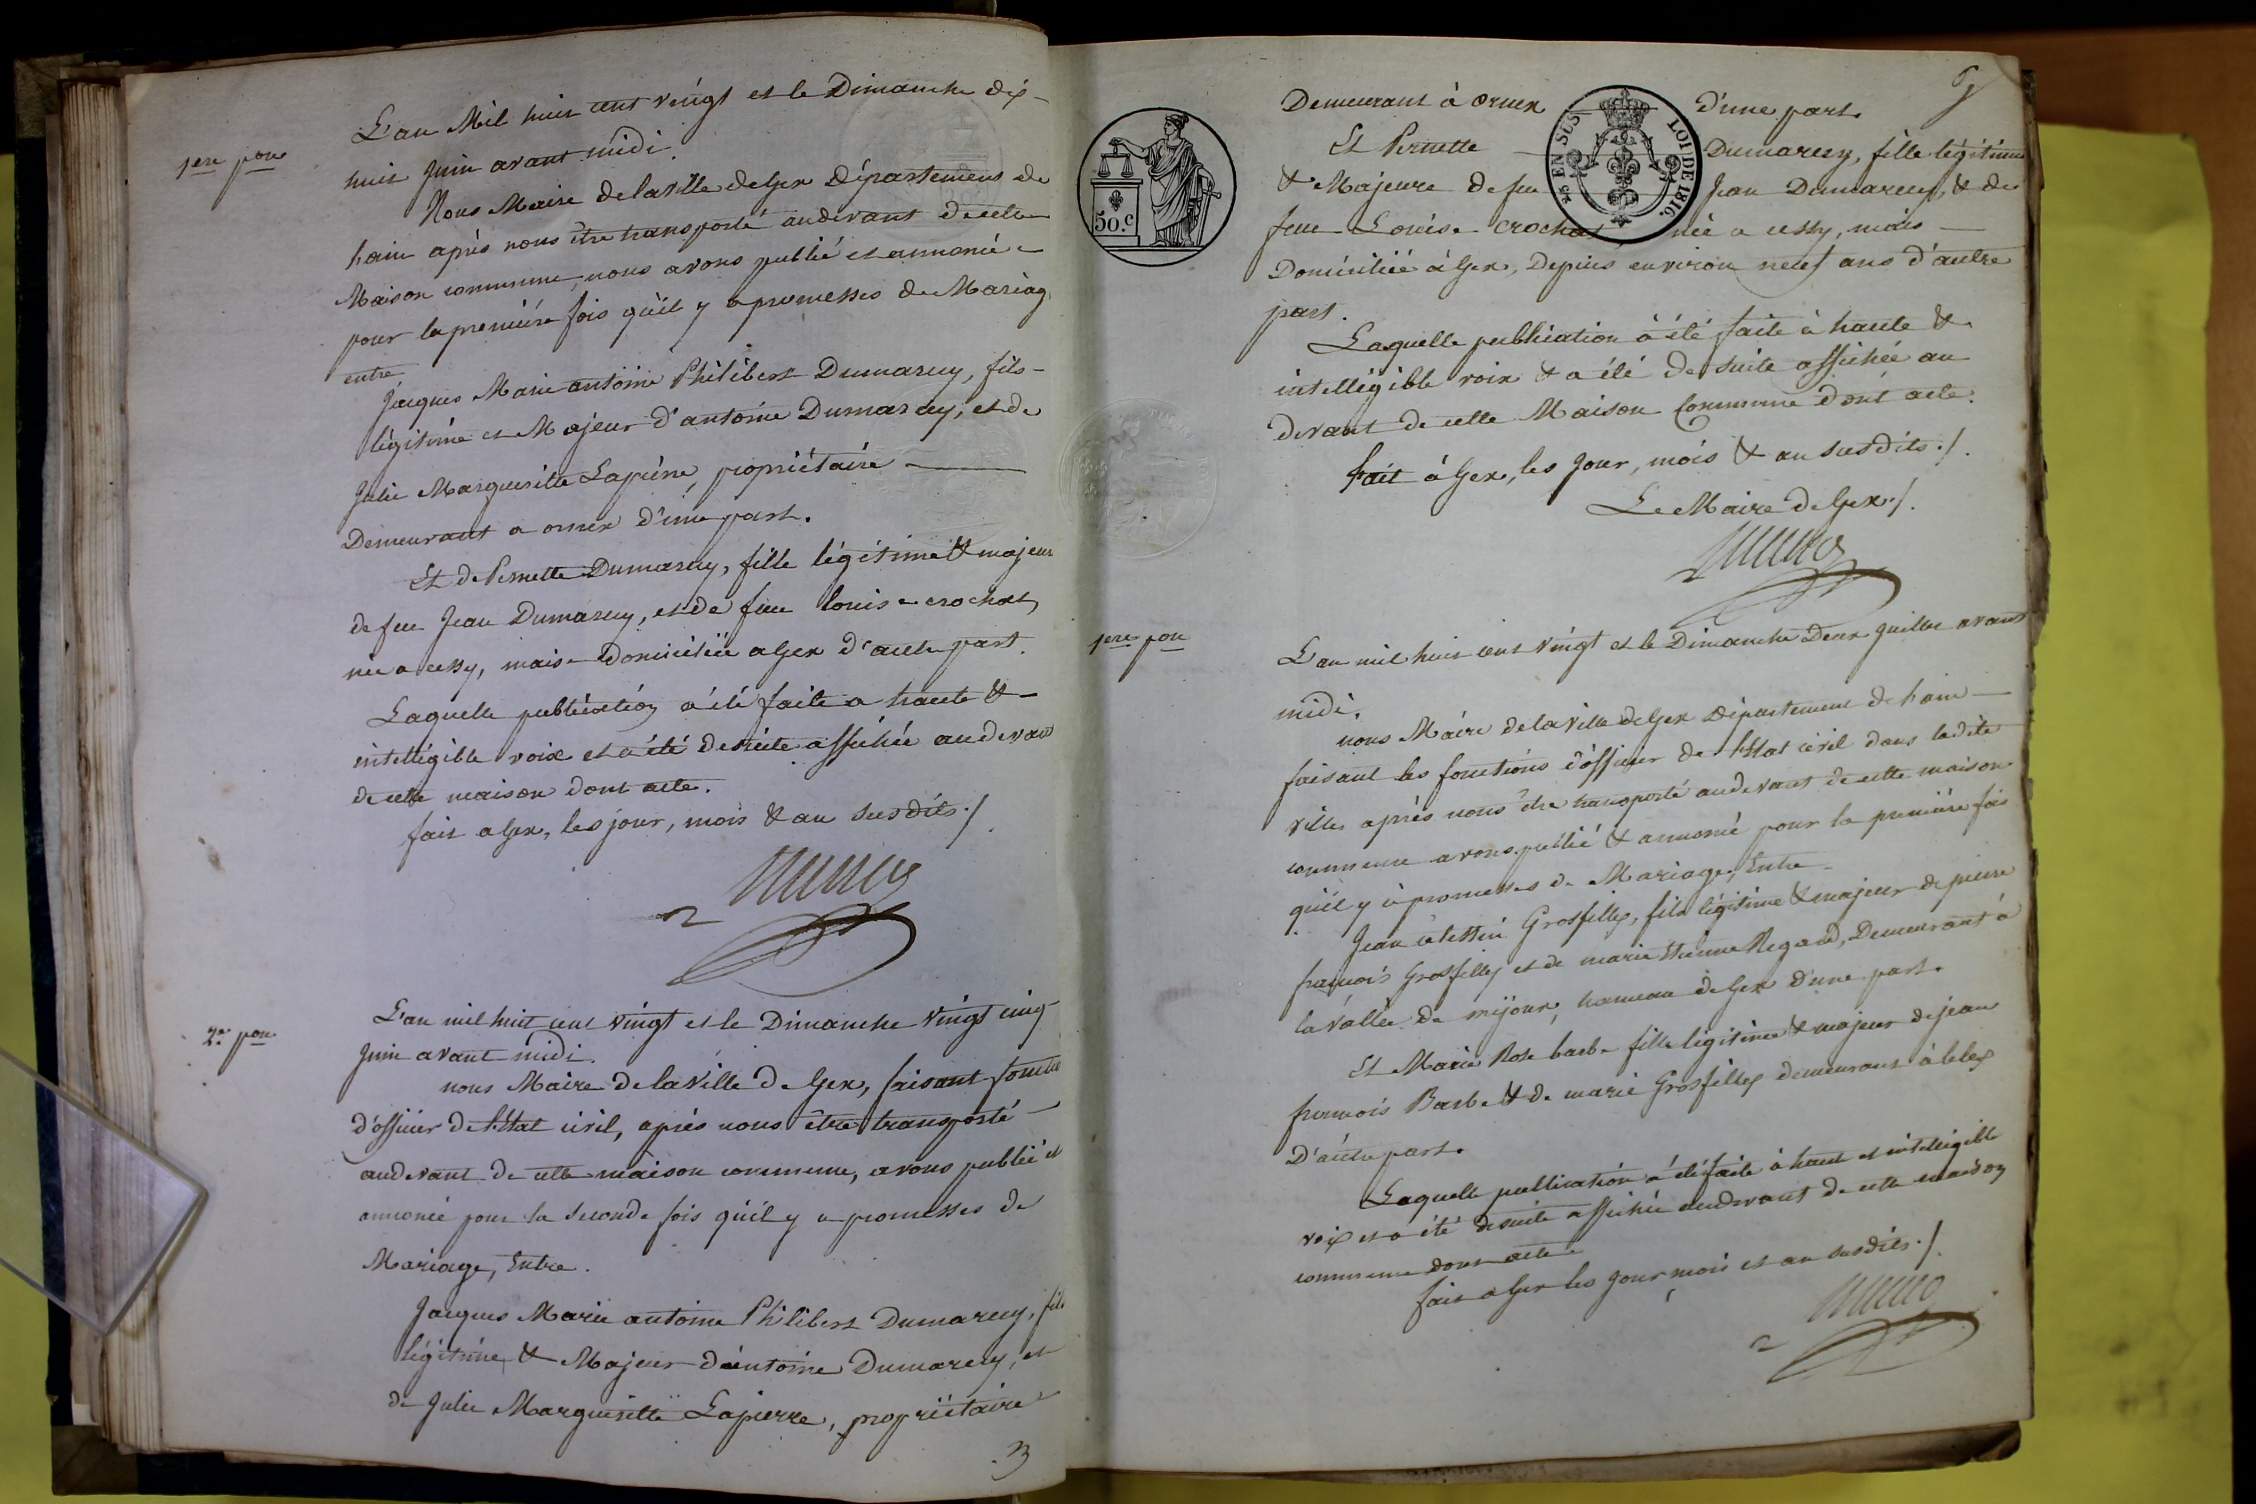 1ere pon
L'an Mil huit cent vingt et le Dimanche dix-
huit Juin avant midi.
Nous Maire de la ville de Gex Département de
l'ain après nous être transporté audevant de cette
Maison commune, nous avons publié et annoncé
pour la première fois qu'il y a promesses de Mariage
entre
Jacques Marie antoine Philibert Dumarcey, fils
légitime et Majeur d'antoine Dumarcey, et de
Julie Marguerite Lapierre, propriétaire
Demeurant a ornex d'une part.
Et de Pernette Dumarcey, fille légitime & majeur
de feu Jean Dumarcey, et de feue Louise crochat,
née a cessy, mais domiciliée a Gex d'autre part.
Laquelle publication a été faite a haute &
intelligible voix et a été de suite affichée audevant
de cette maison dont acte.
fait a Gex, les jour, mois & an susdits ./.
2e pon
L'an mil huit cent vingt et le Dimanche vingt cinq
Juin avant midi.
nous Maire de la Ville de Gex, faisant fonction
d'officier de l'Etat civil, après nous être transporté
audevant de cette maison commune, avons publié et
annoncé pour la seconde fois qu'il y a promesses de
Mariage, Entre.
Jacques Marie antoine Philibert Dumarcey, fils
légitime & Majeur d'antoine Dumarcey, et
de Julie Marguerite Lapierre, propriétaire
3
50.c
EN SUS
LOI DE 1816.
Demeurant à ornex d'une part.
Et Pernette Dumarcey, fille légitime
& Majeure de feu Jean Dumarcey, & de
feue Louise crochat, née a cessy, mais
Domiciliée à Gex, Depuis environ neuf ans d'autre
part.
Laquelle publication à été faite à haute &
intelligible voix & a été de suite affichée au
devant de cette Maison Commune d'ont acte.
fait à Gex, les Jour, mois & an susdits ./.
Le Maire de Gex ./.
1ere pon
L'an mil huit cent vingt et le Dimanche Deux Juillet avant
midi.
nous Maire de la ville de Gex Département de l'ain
faisant les fonctions d'officier de l'Etat civil dans ladite
ville, après nous être transporté audevant de cette maison
commune avons publié & annoncé pour la première fois
qu'il y à promesses de Mariage, Entre
Jean célestin Grosfilley, fils légitime & majeur de pierre
françois Grosfilley et de marie Etienne Regard, Demeurant à
la vallée de mijoux, hameau de Gex d'une part.
Et Marie Rose barbe fille légitime & majeur de jean
françois Barbe & de marie Grosfilley demeurant à lelex
D'autre part.
Laquelle publication a été faite à haute et intelligible
voix et a été de suite affichée audevant de cette maison
commune dont acte
fait a Gex les jour mois et an susdits ./.